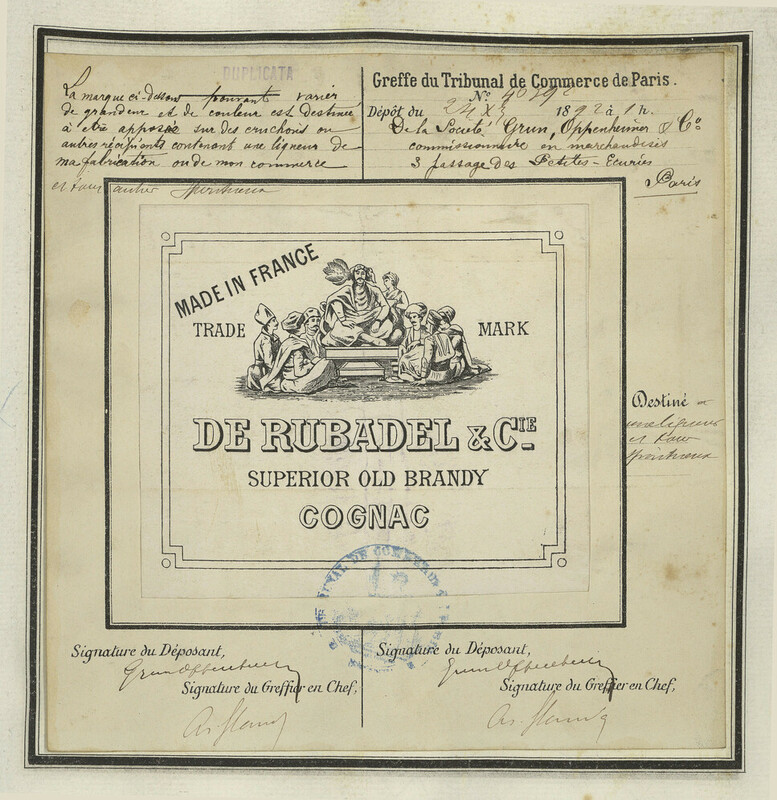 DUPLICATA
La marque ci-dessous pouvant varier
de grandeur et de couleur est destinée
à être apposée sur des cruchons ou
autres récipients contenant une liqueur de
ma fabrication ou de mon commerce
et tous autres spiritueux
Greffe du Tribunal de Commerce de Paris.
No
Dépôt du 24 X 1892 à 1 h.
De la Société Grun, Oppenheimer & Cie
commissionnaire en marchandises
3 passage des Petites-Ecuries
Paris
MADE IN FRANCE
TRADE MARK
DE RUBADEL & CIE
SUPERIOR OLD BRANDY
COGNAC
Destiné à
une liqueur
et tous
spiritueux
TRIBUNAL DE COMMERCE
Signature du Déposant,
Grun Oppenheimer
Signature du Greffier en Chef,
Signature du Déposant,
Grun Oppenheimer
Signature du Greffier en Chef,